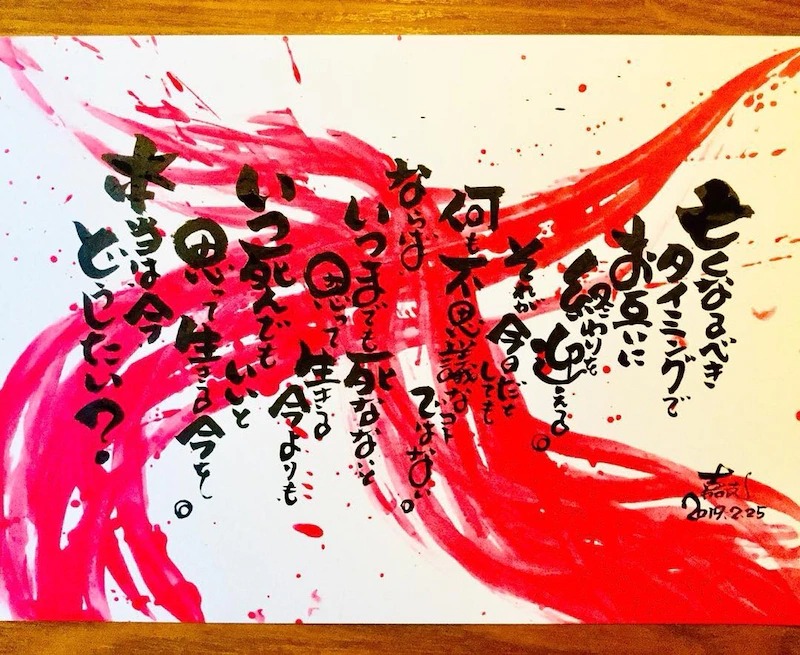 亡くなるべき
タイミングで
お互いに
終わりを
迎える。
それが今日だと
しても
何も不思議な
コトではない。
ならば
いつまでも死なないと
思って生きる
今よりも
いつ死んでも
いいと
思って生きる今を。
本当は今
どうしたい?
2019.2.25